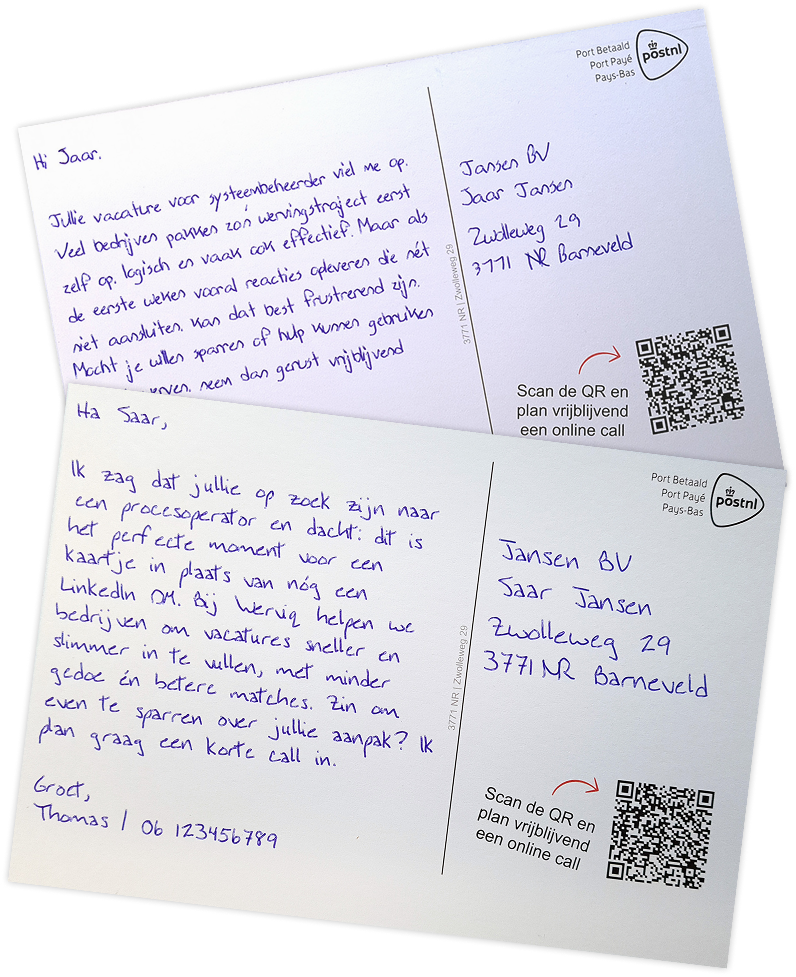 Hi Jaar.
Jullie vacature voor systeembeheerder viel me op.
Veel bedrijven pakken zo'n wervingstraject eerst
zelf op. logisch en vaak ook effectief. Maar als
de eerste weken vooral reacties opleveren die nét
niet aansluiten, kan dat best frustrerend zijn.
Mocht je willen sparren of hulp kunnen gebruiken
neem dan gerust vrijblijvend
3771 NR | Zwolleweg 29
Port Betaald
Port Payé
Pays-Bas
postnl
Jansen BV
Jaar Jansen
Zwolleweg 29
3771 NR Barneveld
Scan de QR en
plan vrijblijvend
een online call
Ha Saar,
Ik zag dat jullie op zoek zijn naar
een procesoperator en dacht: dit is
het perfecte moment voor een
kaartje in plaats van nóg een
LinkedIn DM. Bij Werviq helpen we
bedrijven om vacatures sneller en
slimmer in te vullen, met minder
gedoe én betere matches. Zin om
even te sparren over jullie aanpak? Ik
plan graag een korte call in.
Groet,
Thomas | 06 123456789
3771 NR | Zwolleweg 29
Port Betaald
Port Payé
Pays-Bas
postnl
Jansen BV
Saar Jansen
Zwolleweg 29
3771 NR Barneveld
Scan de QR en
plan vrijblijvend
een online call